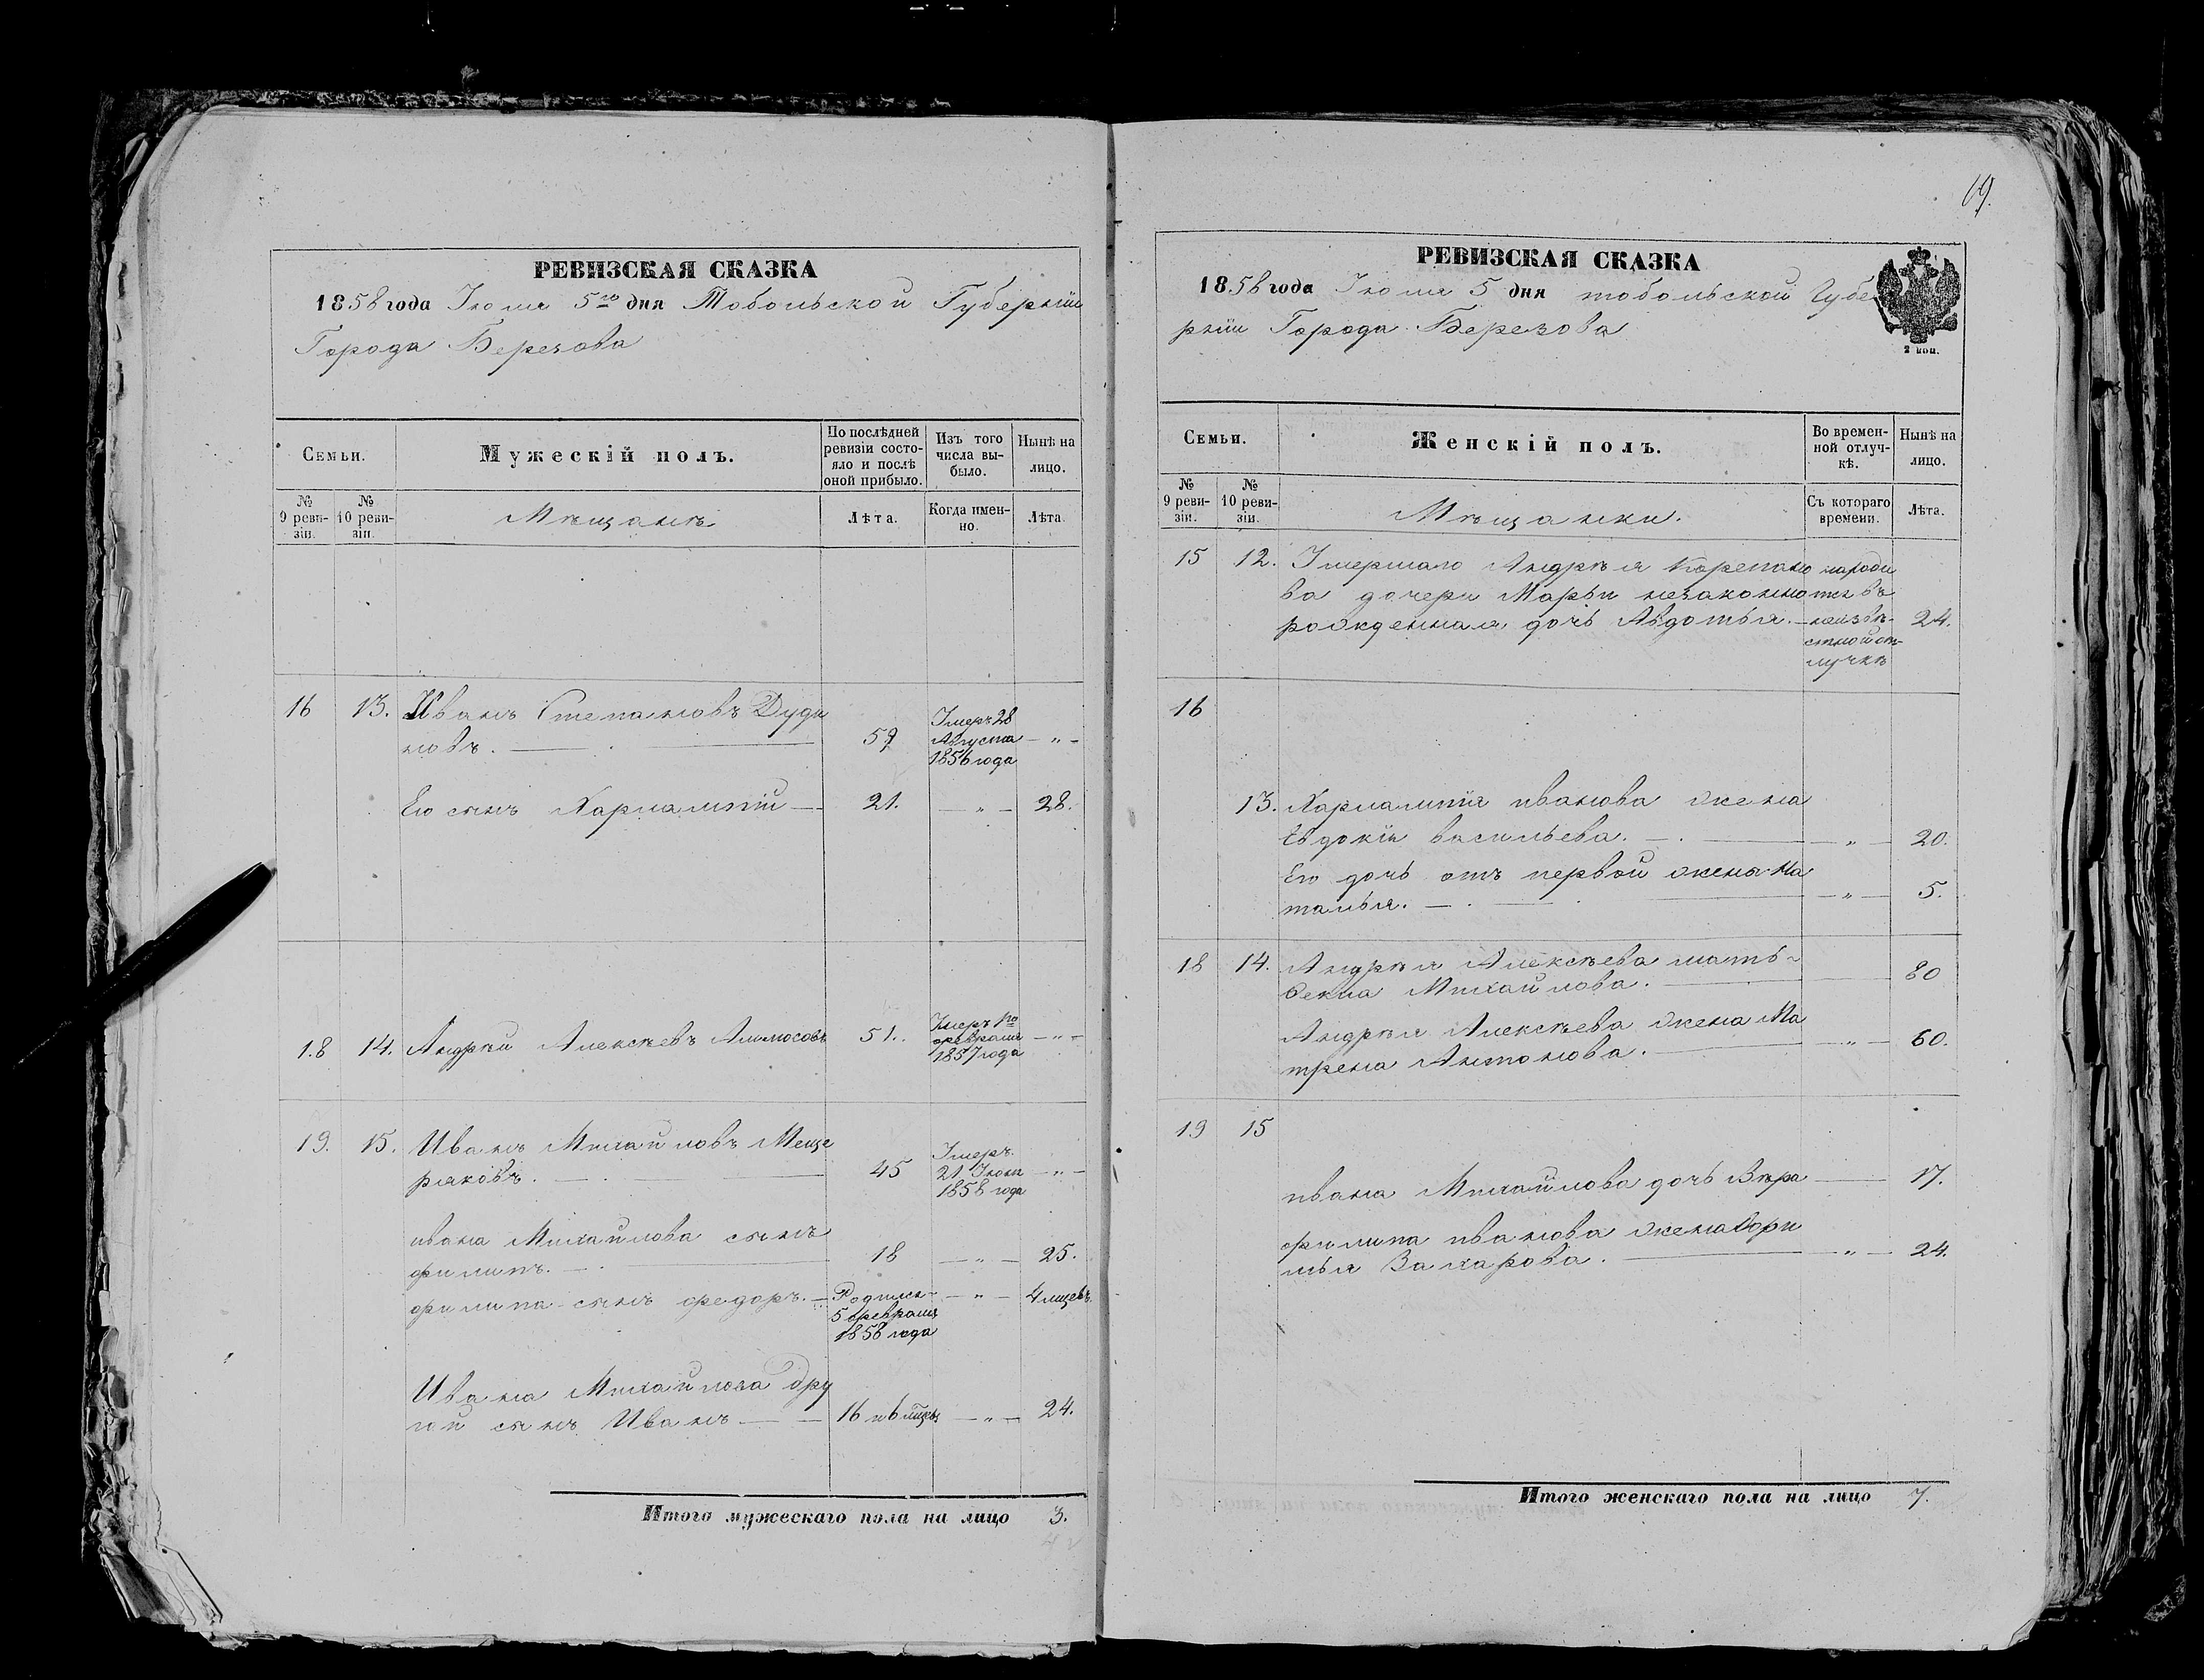 РЕВИЗСКАЯ СКАЗКА
1858 года Іюля 5го дня Тобольской Губерніи
Города Березова
Семьи.
Мужескій полъ.
По послѣдней ревизіи состояло и послѣ оной прибыло.
Изъ того числа выбыло.
Нынѣ на лицо.
№ 9 ревизіи.
№ 10 ревизіи.
Мѣщанъ
Лѣта.
Когда именно.
Лѣта.
16 13. Иванъ Степановъ Дуди
новъ. 59 Умеръ 28 Августа 1856 года — " —
Его сынъ Харлампій — 21. — " — 28.
18 14. Андрей Алексѣевъ 51. Умеръ февраля 1857 года — " —
19. 15. Иванъ Михайловъ Меще
ряковъ. 45 Умеръ 21 Іюня 1858 года — " —
ивана Михайлова сынъ
филипъ. 18 — " — 25.
филипа сынъ федоръ. — Родился 5 февраля 1858 года — " — 4 мцевъ.
Ивана Михайлова дру
гой сынъ Иванъ — 16 и 6 мцвъ — " — 24.
Итого мужескаго пола на лицо 3.
69.
РЕВИЗСКАЯ СКАЗКА
1858 года Іюля 5 дня тобольской Губе
рніи Города Березова
2 коп.
Семьи.
Женскій полъ.
Во временной отлучкѣ.
Нынѣ на лицо.
№ 9 ревизіи.
№ 10 ревизіи.
Мѣщанки.
Съ котораго времени.
Лѣта.
15 12. Умершаго Андрѣя Корепано
ва дочери Марьи незаконно
рожденная дочь Авдотья. — 24.
неизвѣ-
стной от-
лучкѣ
16
13. Харлампія иванова жена
Евдокія васильева. — " — 20.
Его дочь отъ первой жены На
талья. — " — 5.
18 14. Андрѣя Алексѣева мать
Фекла Михайлова. 80
Андрѣя Алексѣева жена Ма
трена Антонова. — " — 60.
19 15
ивана Михайлова дочь Вѣра — 17.
филипа иванова жена
Захарова. — " — 24.
Итого женскаго пола на лицо 7.